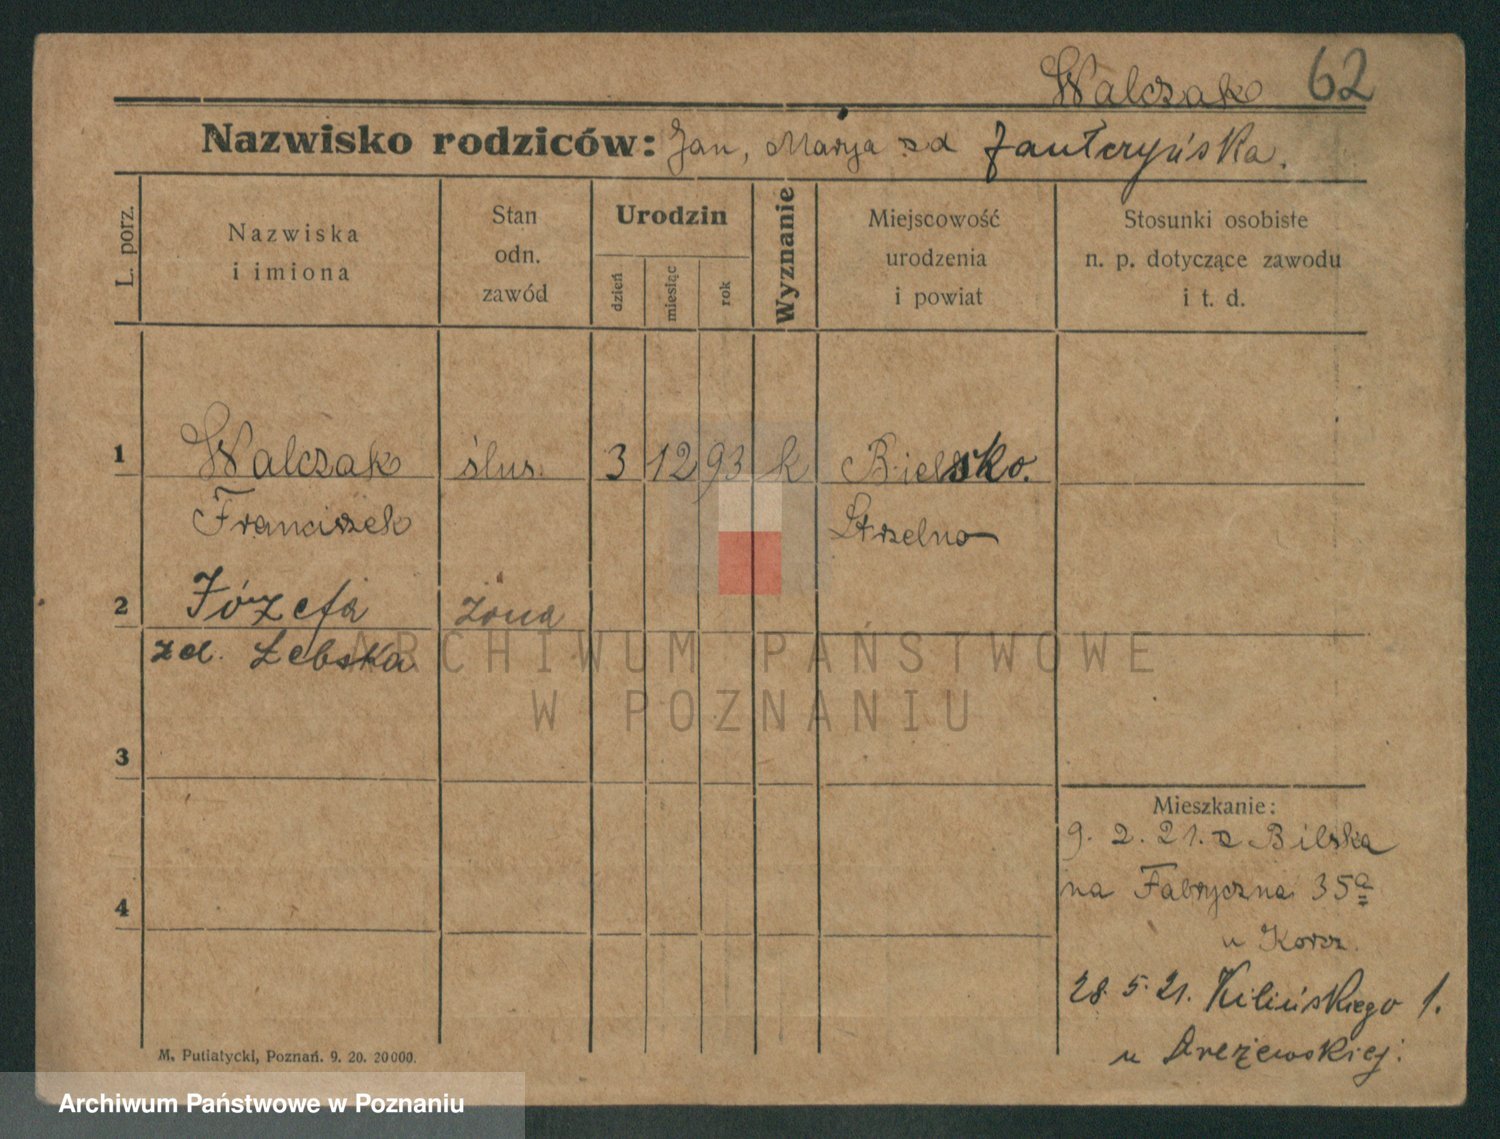 Walczak 62
Nazwisko rodziców: Jan, Marya zd Janterzyńska.
L. porz.
Nazwiska
i imiona
Stan
odn.
zawód
Urodzin
dzień
miesiąc
rok
Wyznanie
Miejscowość
urodzenia
i powiat
Stosunki osobiste
n. p. dotyczące zawodu
i t. d.
1 Walczak ślus. 3 12 93 k Bielsko.
Franciszek Strzelno
2 Józefa żona
zd. Łebska
3
4
Mieszkanie:
9. 2. 21. z Bilska
na Fabryczna 35a
u Korcz.
28. 5. 21. Kilińskiego 1.
u Drezewskiej.
M. Putiatycki, Poznań. 9. 20. 20000.
ARCHIWUM PAŃSTWOWE
W POZNANIU
Archiwum Państwowe w Poznaniu